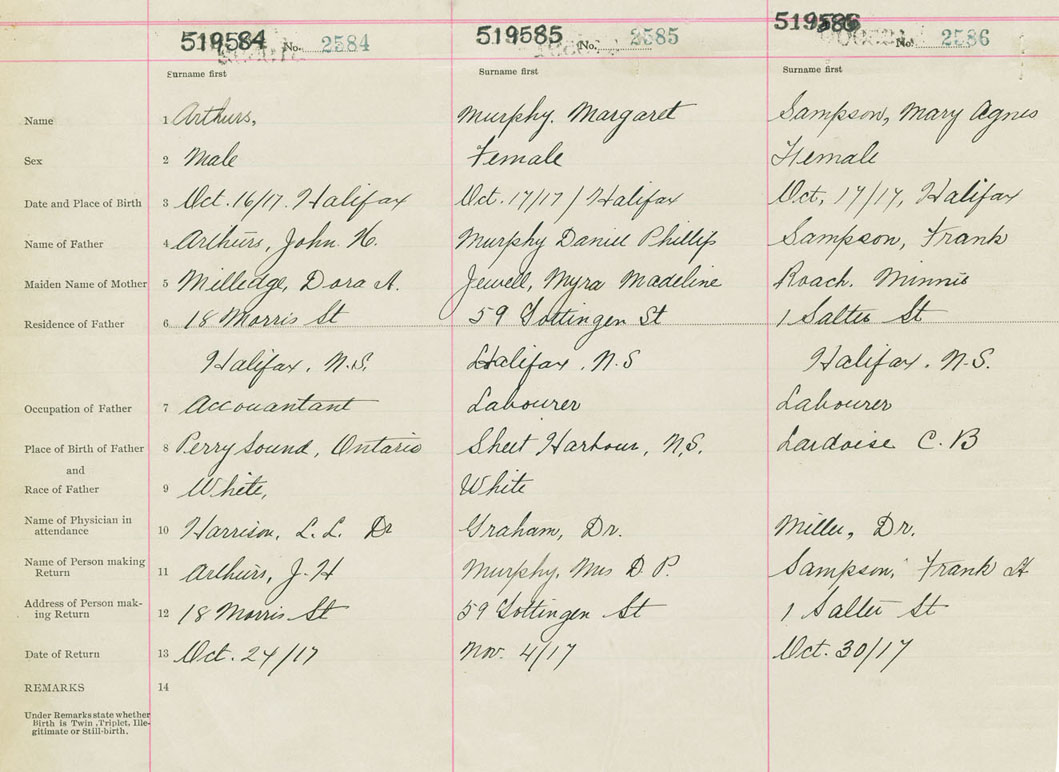 519584 No. 2584 519585 No. 2585 519586 No. 2586
Surname first Surname first Surname first
Name 1 Arthurs, Murphy. Margaret Sampson, Mary Agnes
Sex 2 Male Female Female
Date and Place of Birth 3 Oct. 16/17. Halifax Oct. 17/17 / Halifax Oct, 17/17, Halifax
Name of Father 4 Arthurs, John H. Murphy Daniel Phillip Sampson, Frank
Maiden Name of Mother 5 Milledge, Dora A. Jewell, Myra Madeline Roach. Minnie
Residence of Father 6 18 Morris St 59 Gottingen St 1 Salter St
Halifax, N.S. Halifax, N.S Halifax, N.S.
Occupation of Father 7 Accountant Labourer Labourer
Place of Birth of Father 8 Perry Sound, Ontario Sheet Harbour, N.S. Lardoise C. B
and
Race of Father 9 White, White
Name of Physician in
attendance 10 Harrison, L. L. Dr Graham, Dr. Miller, Dr.
Name of Person making
Return 11 Arthurs, J. H Murphy, Mrs D. P. Sampson, Frank H
Address of Person mak-
ing Return 12 18 Morris St 59 Gottingen St 1 Salter St
Date of Return 13 Oct. 24/17 Nov. 4/17 Oct. 30/17
REMARKS 14
Under Remarks state whether
Birth is Twin, Triplet, Ille-
gitimate or Still-birth.